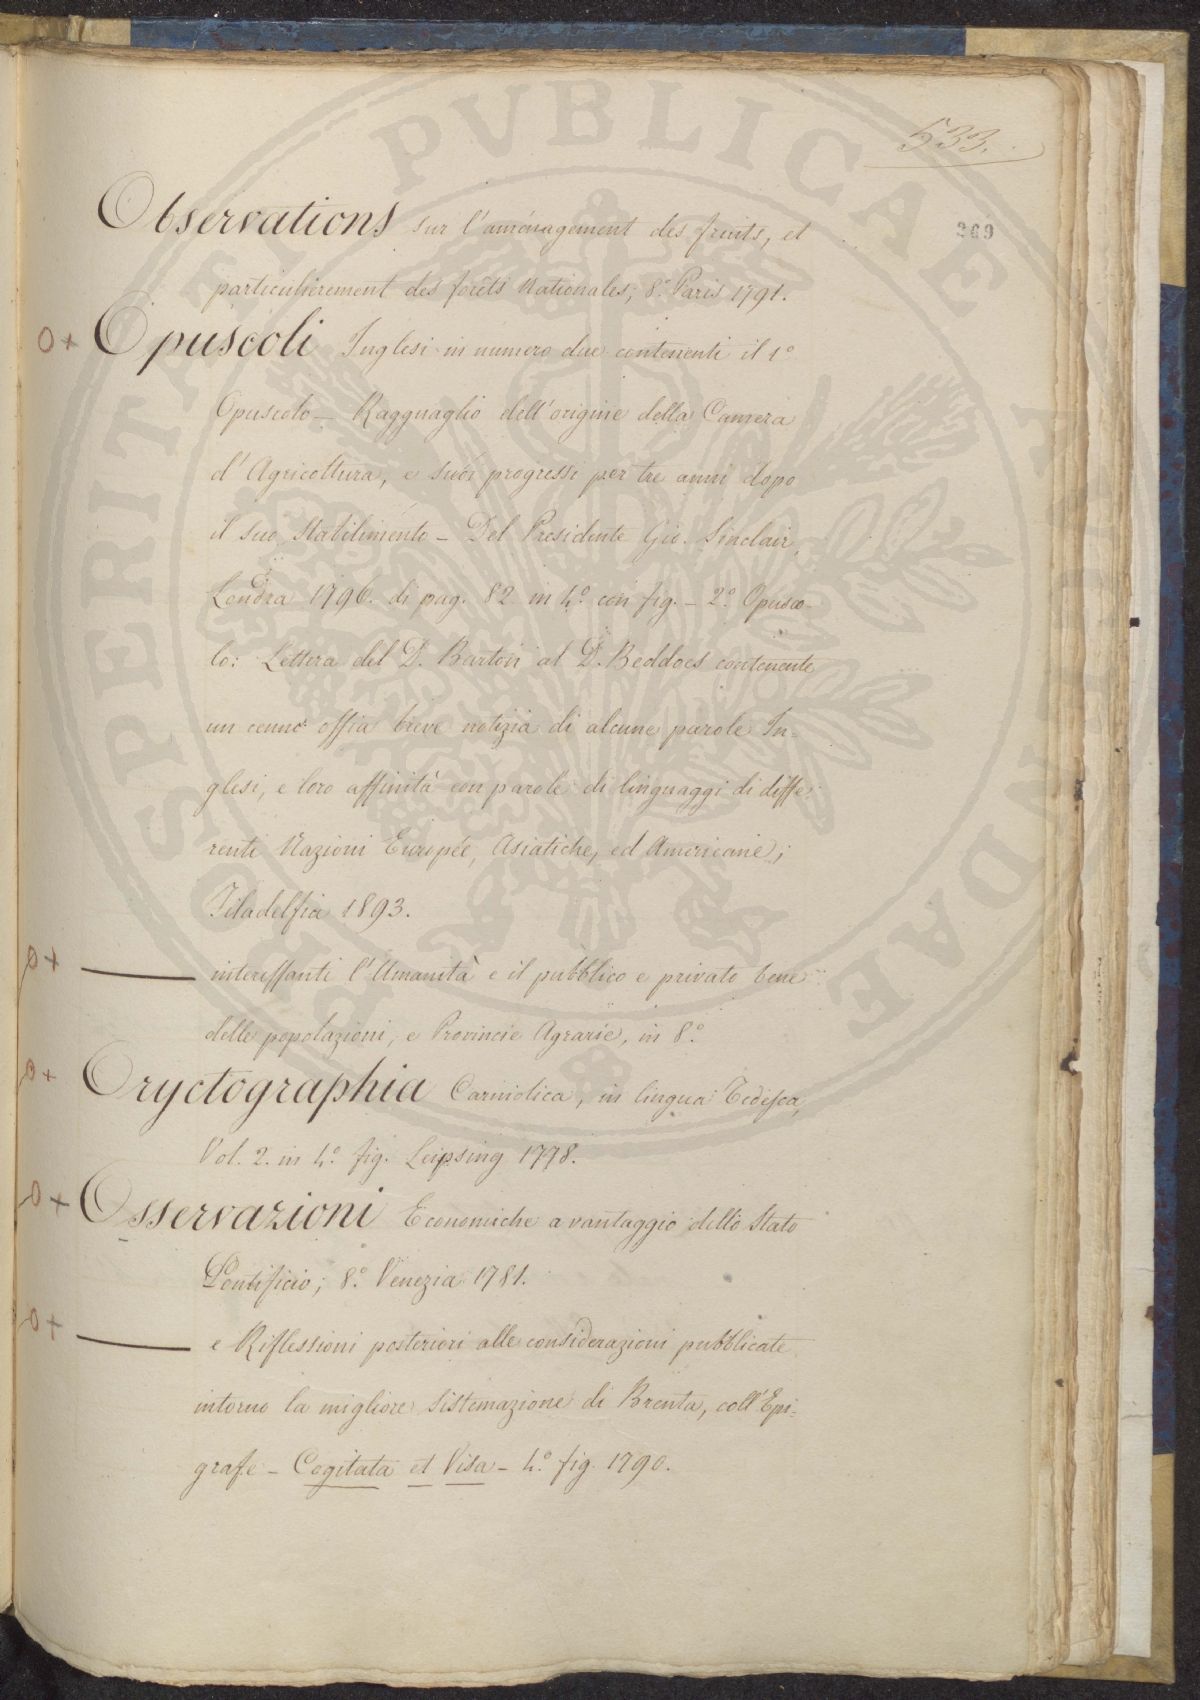 533.
269
Observations sur l'aménagement des fruits, et
particulierement des forêts Nationales; 8.° Paris 1791.
O+ Opuscoli Inglesi in numero due contenenti il 1°
Opuscolo — Ragguaglio dell'origine della Camera
d'Agricoltura, e suoi progressi per tre anni dopo
il suo stabilimento — Del Presidente Gio. Sinclair,
Londra 1796. di pag. 82 in 4.° con fig. — 2.° Opusco-
lo: Lettera del D. Barton al D. Beddoes contenente
un cenno ossia breve notizia di alcune parole In=
glesi, e loro affinità con parole di linguaggi di diffe:
renti Nazioni Europée, Asiatiche, ed Americane;
Filadelfia 1893.
O+ —— interessanti l'Umanità e il pubblico e privato bene
delle popolazioni, e Provincie Agrarie, in 8.°
O+ Oryctographia Carniolica, in lingua Tedesca,
Vol. 2. in 4.° fig. Leipsing 1778.
O+ Osservazioni Economiche a vantaggio dello Stato
Pontificio; 8.° Venezia 1781.
O+ —— e Riflessioni posteriori alle considerazioni pubblicate
intorno la migliore sistemazione di Brenta, coll'Epi=
grafe — Cogitata et Visa — 4.° fig. 1790.
PROSPERITATI PVBLICAE AVGENDAE